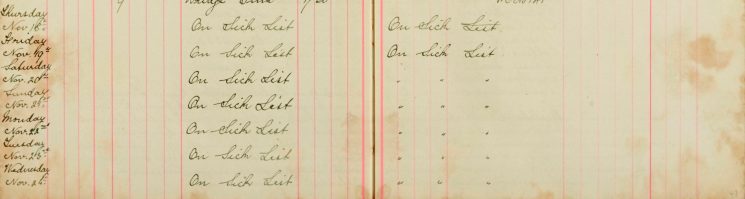 Thursday
Nov. 18th On Sick List On Sick List
Friday
Nov. 19th On Sick List On Sick List
Saturday
Nov. 20th On Sick List " " "
Sunday
Nov. 21st On Sick List " " "
Monday
Nov. 22nd On Sick List " " "
Tuesday
Nov. 23rd On Sick List " " "
Wednesday
Nov. 24th On Sick List " " "